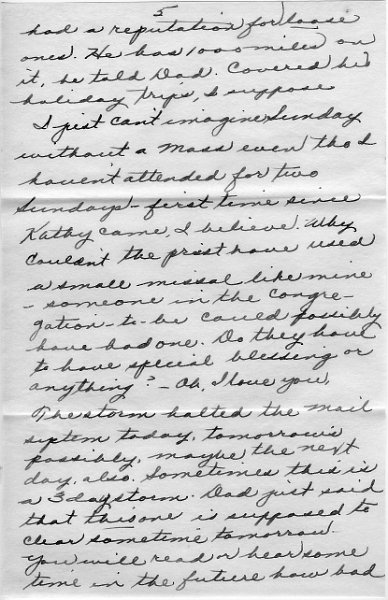 5
had a reputation for loose
ones. He has 1000 miles on
it, he told Dad. Covered his
holiday trips, I suppose
I just can't imagine Sunday
without a Mass even tho I
havent attended for two
Sundays - first time since
Kathy came, I believe. Why
couldn't the priest have used
a small missal like mine
- someone in the congre-
gation-to-be could possibly
have had one. Do they have
to have special blessing or
anything? - Oh, I love you.
The storm halted the mail
system today, tomorrow's
possibly, maybe the next
day, also. Sometimes this is
a 3 day storm. Dad just said
that this one is supposed to
clear sometime tomorrow.
You will read or hear some
time in the future how bad